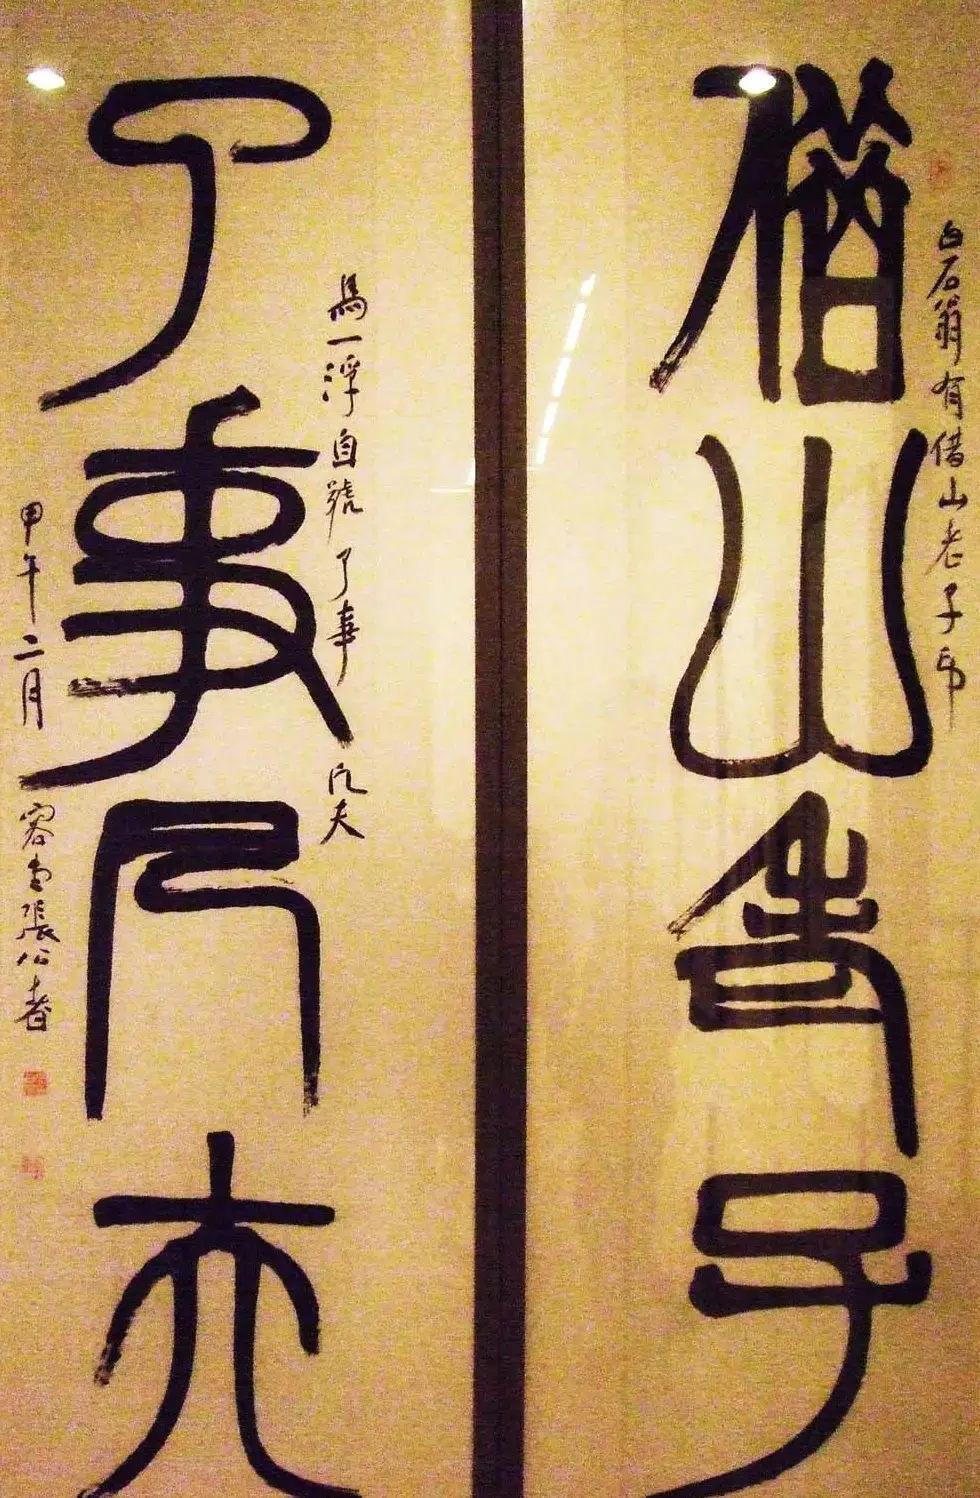 白石翁有借山老子印
借山老子
馬一浮自號了事凡夫
了事凡夫
甲午二月 容堂張公者